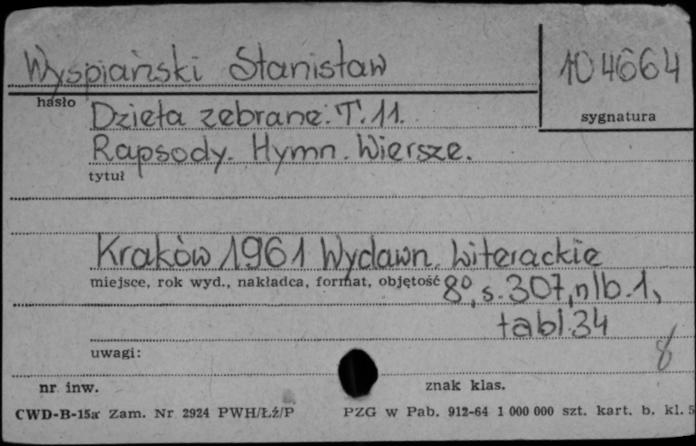 Wyspiański Stanisław
104664
hasło
sygnatura
Dzieła zebrane. T. 11.
Rapsody. Hymn. Wiersze.
tytuł
Kraków 1961 Wydawn. Literackie
miejsce, rok wyd., nakładca, format, objętość
8°, s. 307, nlb. 1,
tabl. 34
uwagi:
8
nr inw.
znak klas.
CWD-B-15a Zam. Nr 2924 PWH/Łź/P
PZG w Pab. 912-64 1 000 000 szt. kart. b. kl. 5